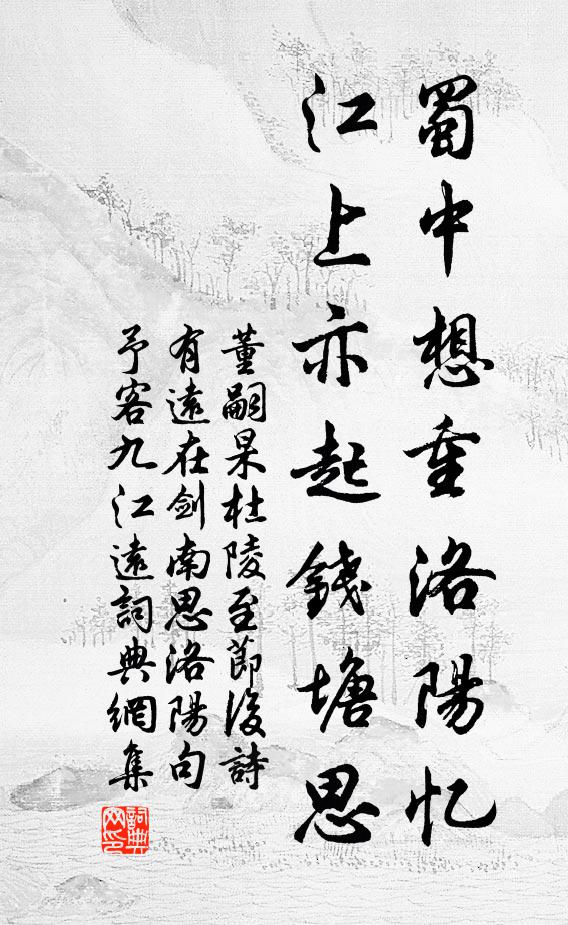 蜀中想重洛陽忆
江上亦起錢塘思
董嗣杲杜陵至節後詩
有遠在劍南思洛陽句
予客九江遠詞典網集
詞典
网印